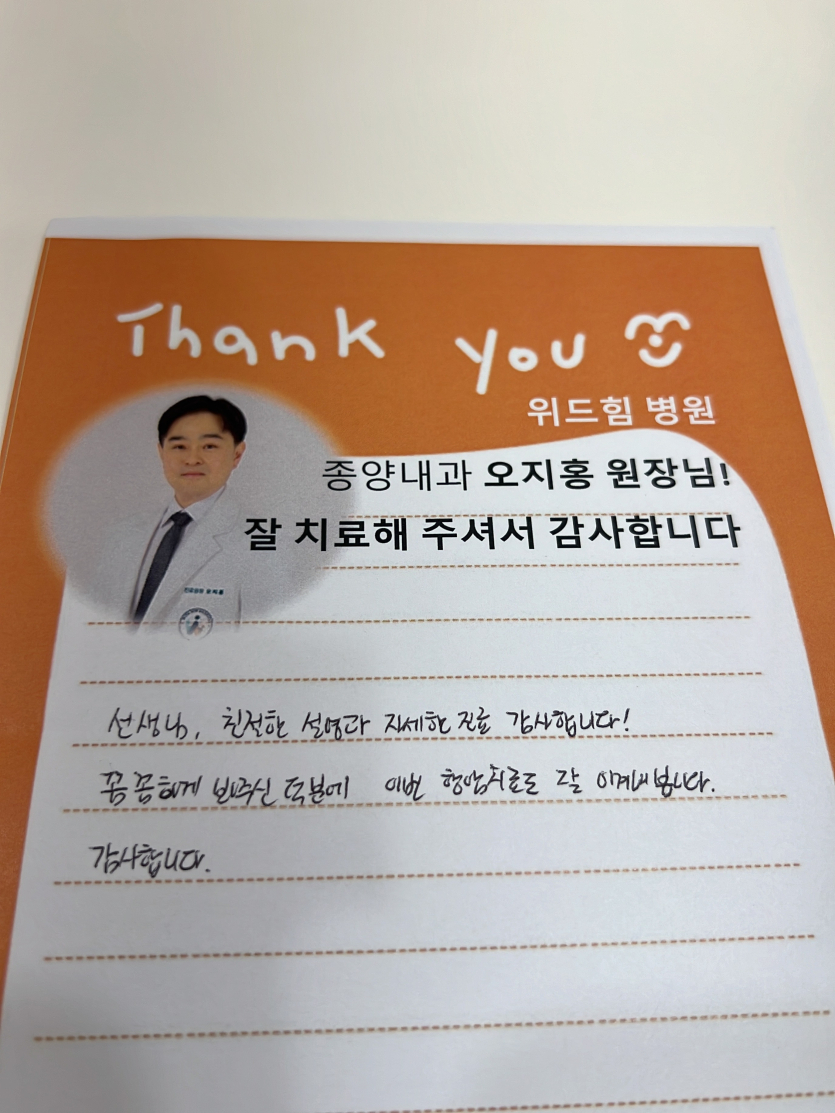 Thank you
위드힘 병원
종양내과 오지홍 원장님!
잘 치료해 주셔서 감사합니다
선생님, 친절한 설명과 자세한 진료 감사합니다!
꼼꼼하게 봐주신 덕분에 이번 항암치료도 잘 이겨내봅니다.
감사합니다.